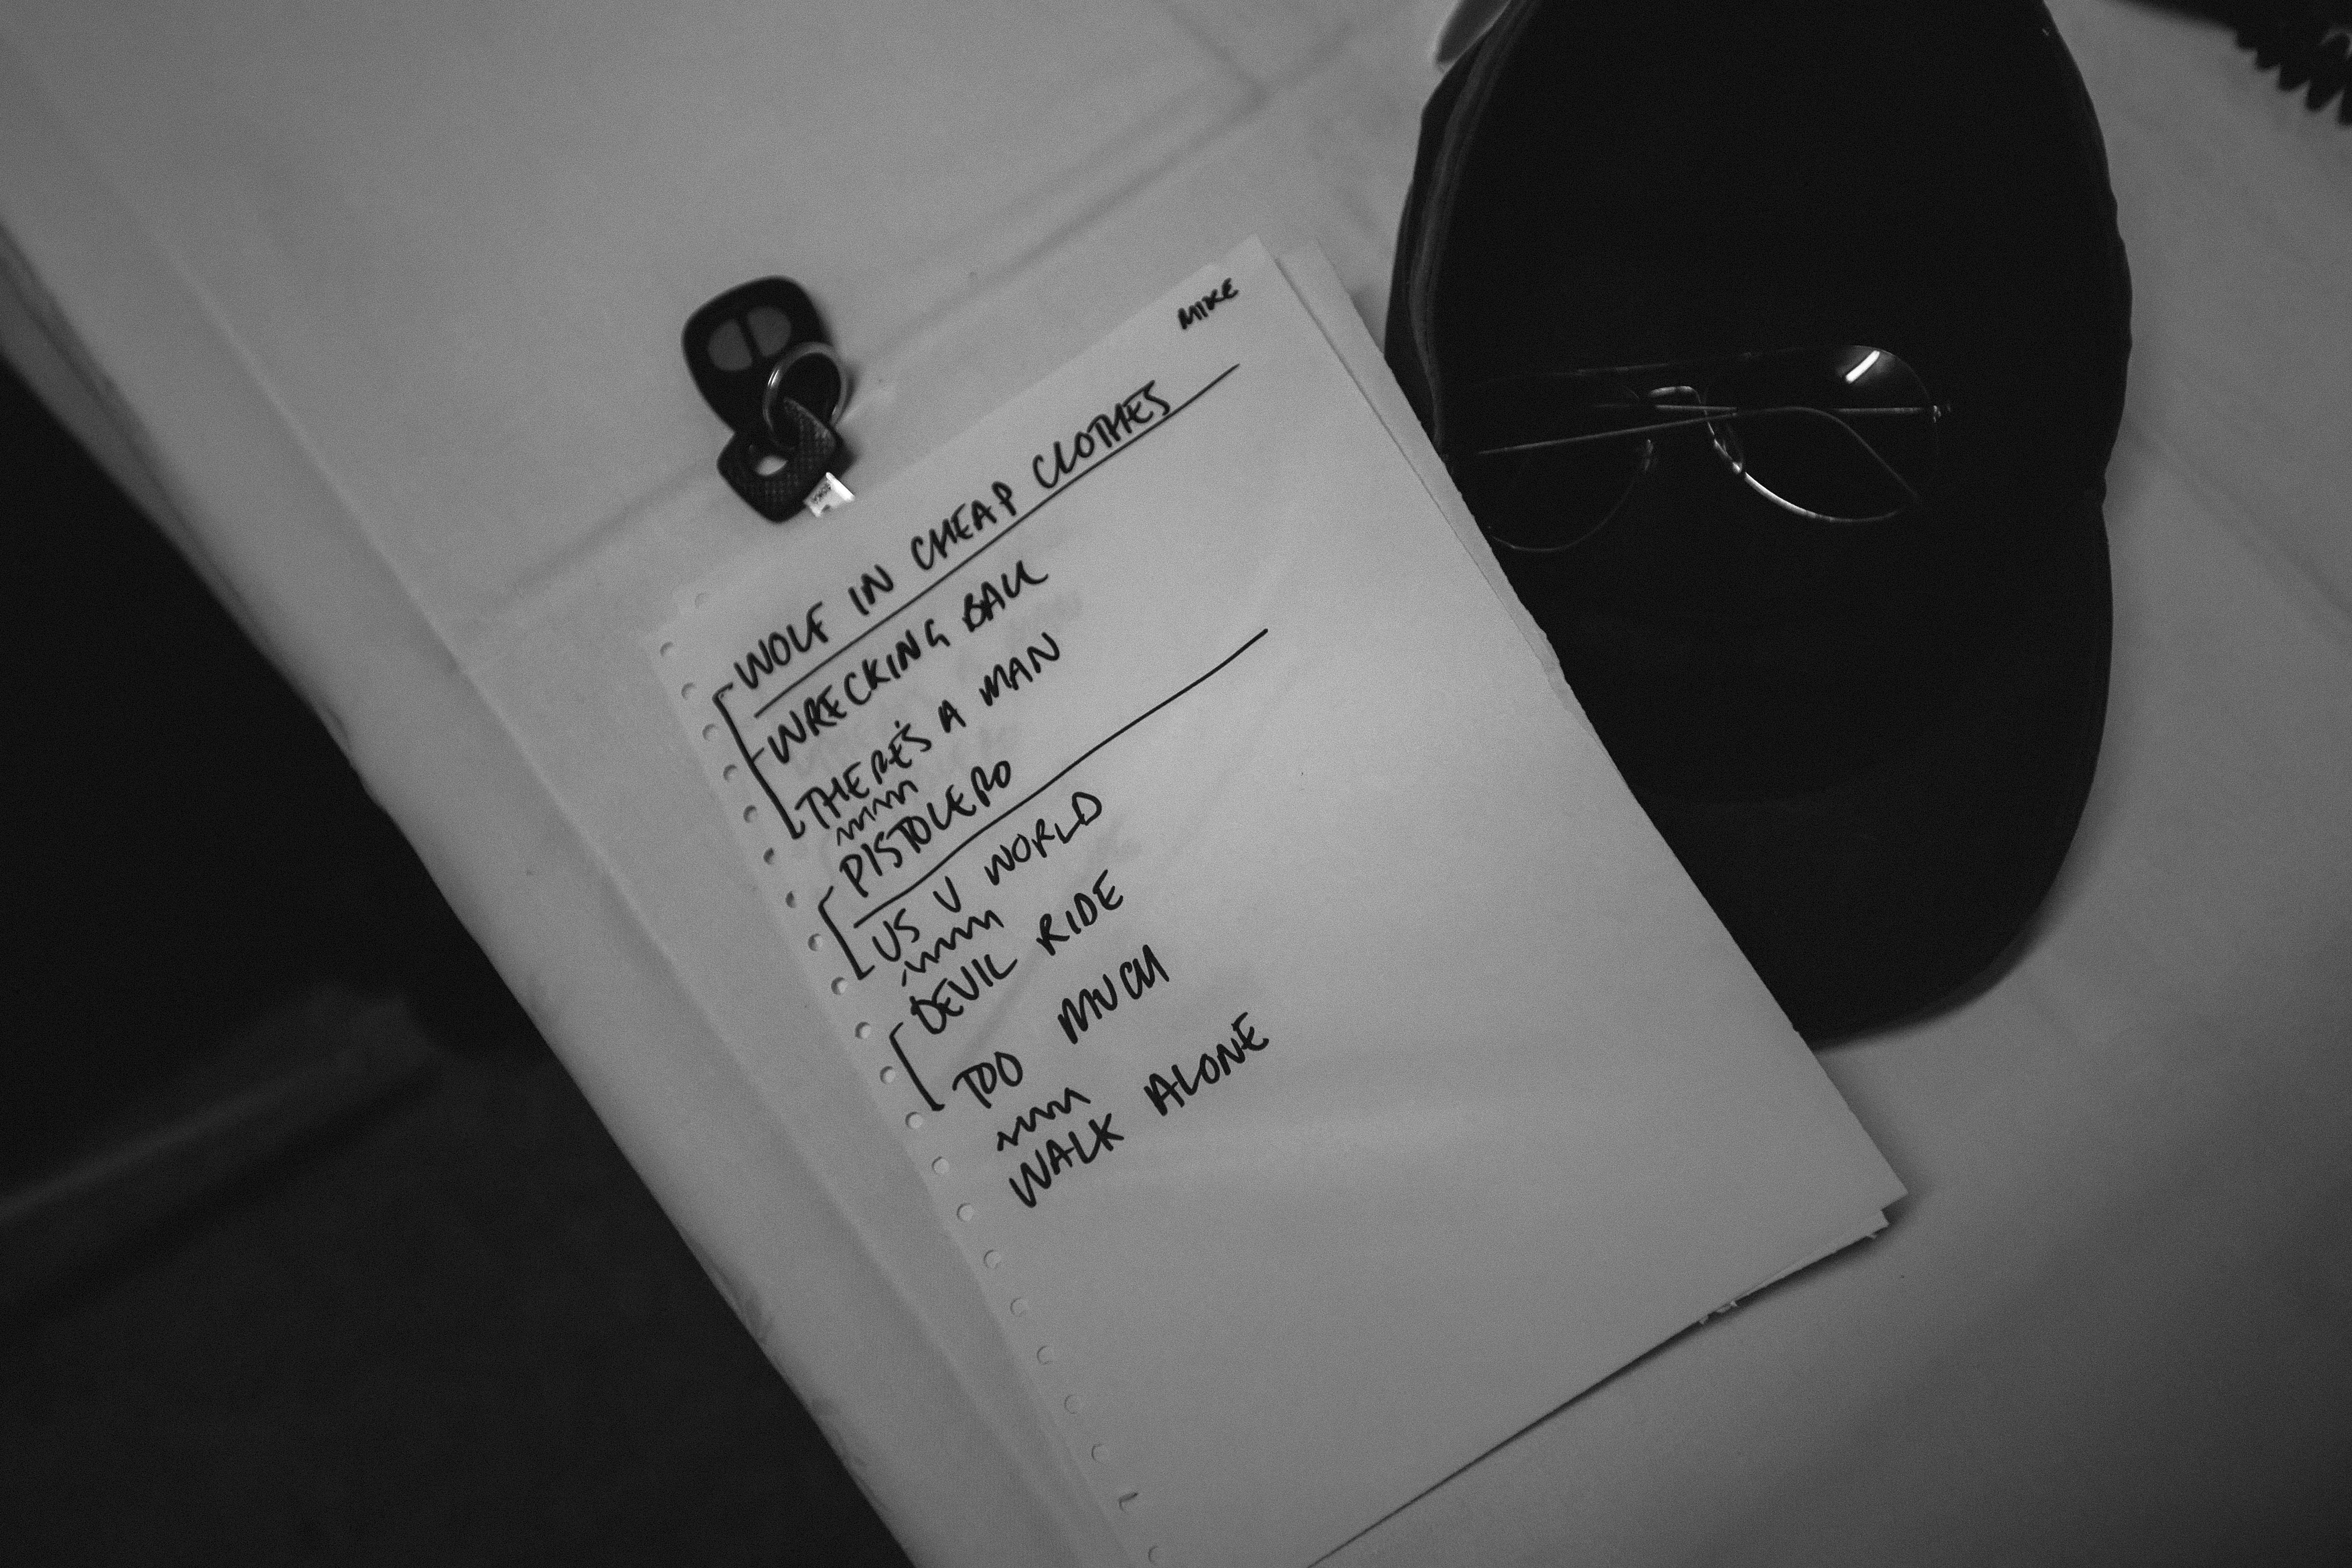 MIKE
WOLF IN CHEAP CLOTHES
WRECKING BALL
THERE'S A MAN
PISTOLERO
US V WORLD
DEVIL RIDE
TOO MUCH
WALK ALONE